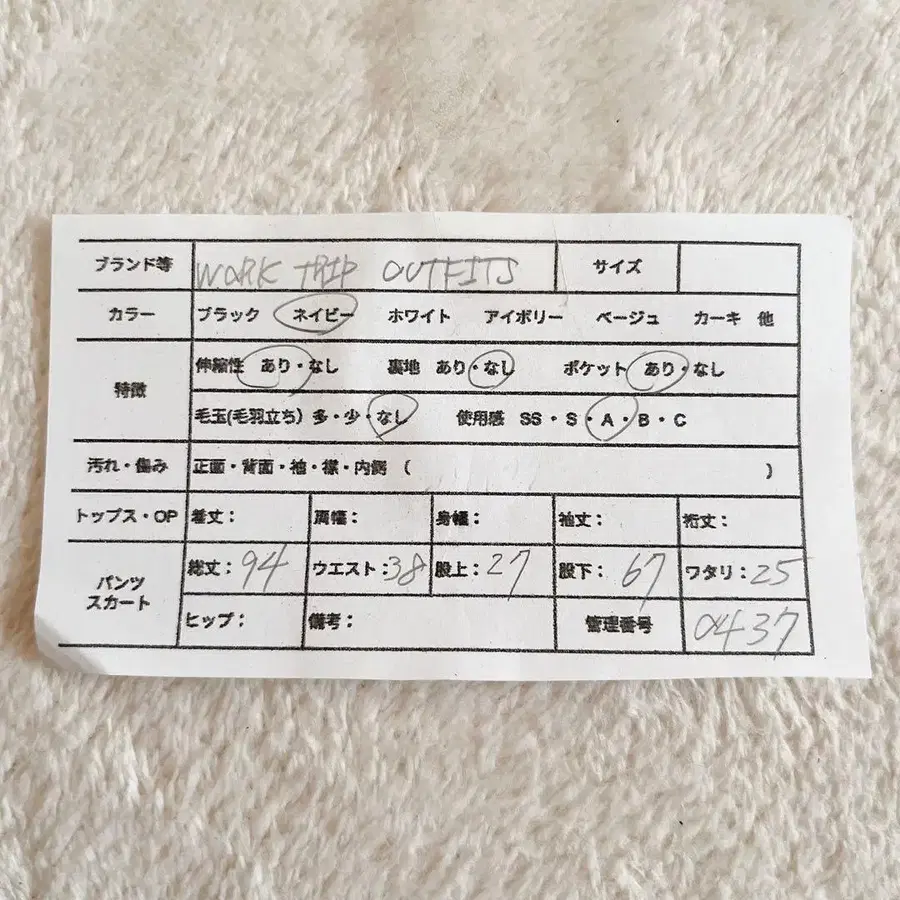 ブランド等 WORK TRIP OUTFITS サイズ
カラー ブラック ネイビー ホワイト アイボリー ベージュ カーキ 他
特徴 伸縮性 あり・なし 裏地 あり・なし ポケット あり・なし
毛玉(毛羽立ち) 多・少・なし 使用感 SS・S・A・B・C
汚れ・傷み 正面・背面・袖・襟・内側 ( )
トップス・OP 着丈: 肩幅: 身幅: 袖丈: 裄丈:
パンツ スカート 総丈:94 ウエスト:38 股上:27 股下:67 ワタリ:25
ヒップ: 備考: 管理番号 0437